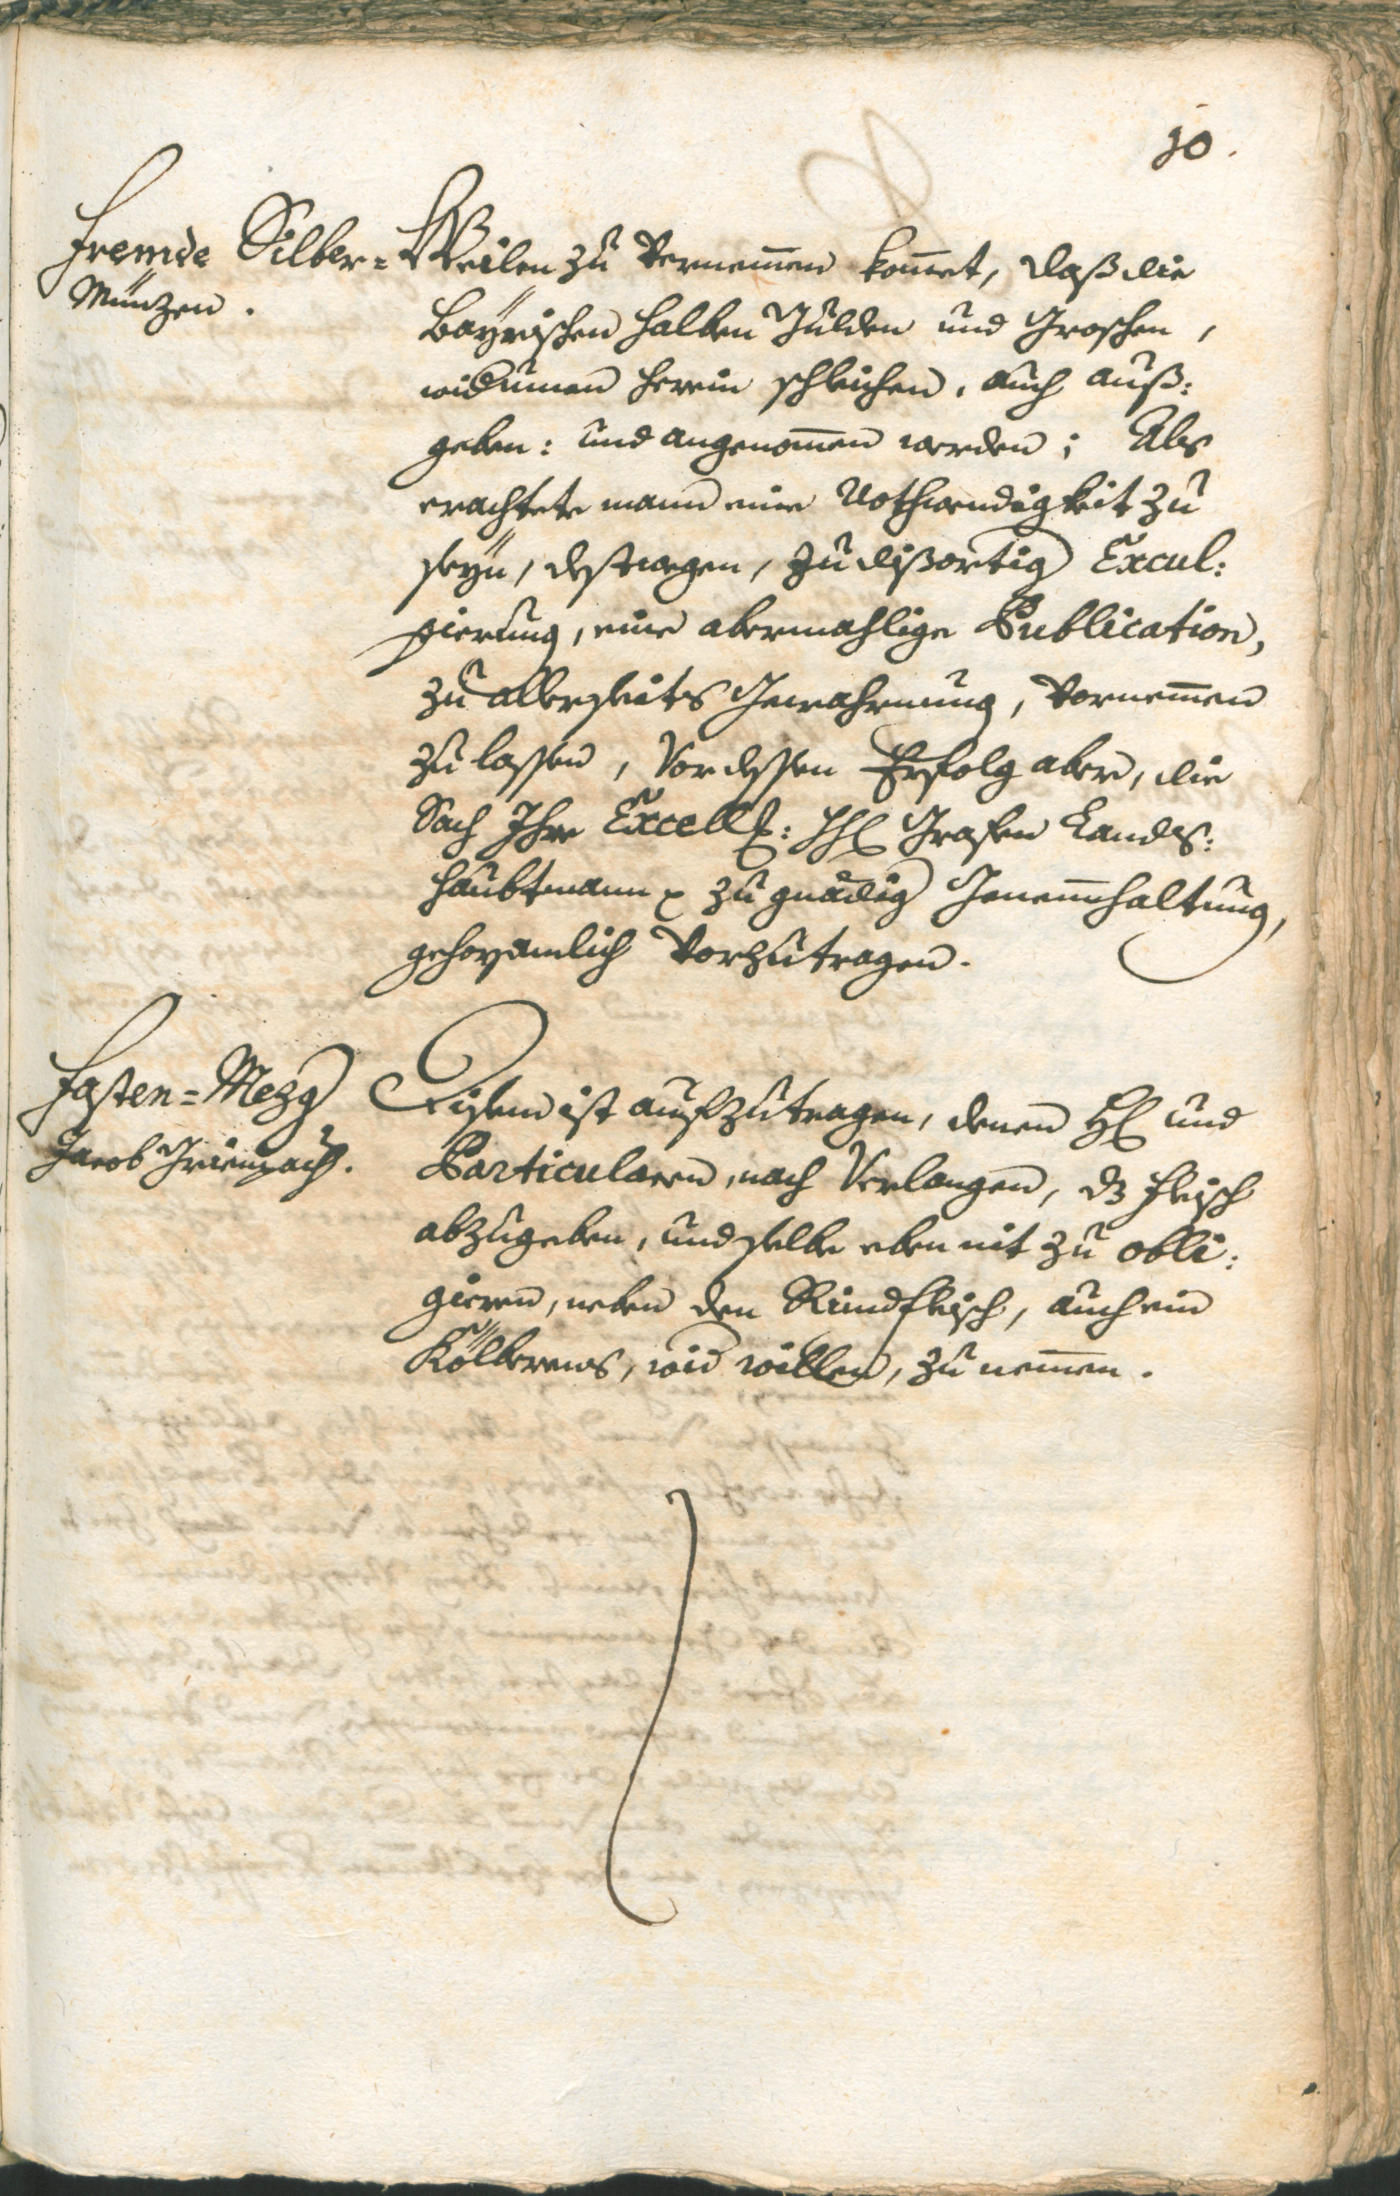 10.
Fremde Silber=
Münzen.
Weilen zu Vernemmen kommet, daß die
Bayrischen halben Gulden und Groschen,
widumen herein schleichen, auch auß:
geben: und angenommen werden; Als
erachtete mann eine Nothwendigkeit zu
seyn, destwegen, zu dißortig Excul:
pierung, eine abermahlige Publication,
zu allerseits Gewahrnung, Vornemmen
zu lassen, Vor dessen Erfolg aber, die
Sach Ihro Excell: H Grafen Landts:
haubtmann zu gnädig Genemmhaltung,
gehorsamlich Vorzutragen.
Fasten=Mezg
Jacob
Disem ist aufzutragen, denen H und
Particularn, nach Verlangen, dz Fleisch
abzugeben, und selbe eben nit zu obli:
gieren, neben den Rindfleisch, auch ein
Kölbernes, wid willen, zu nemmen.